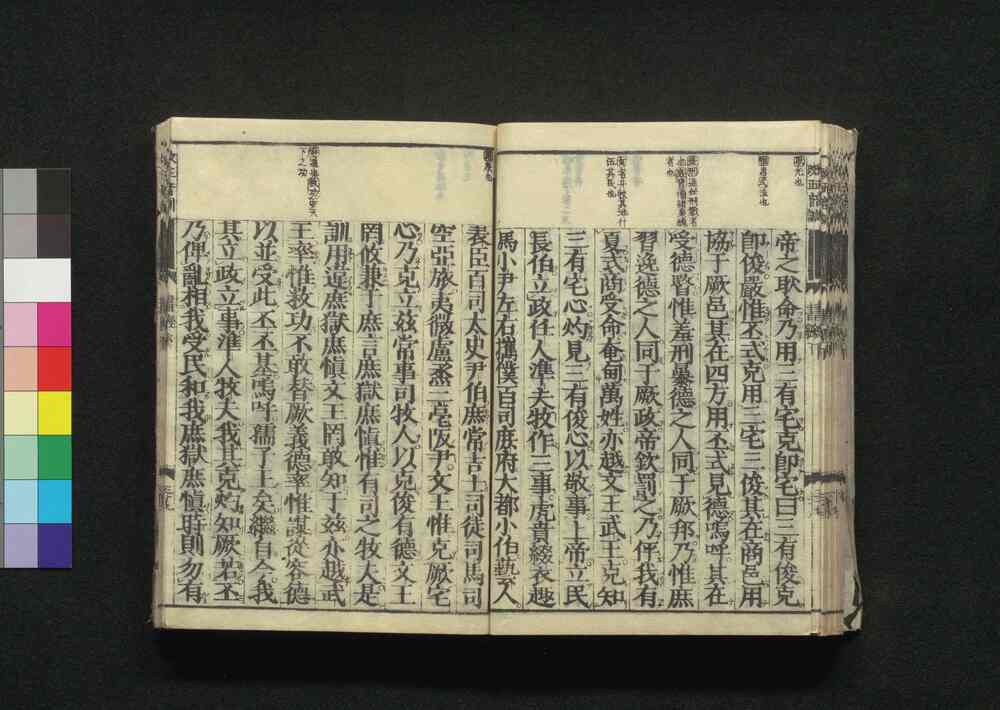 帝之耿命乃用三有宅克卽宅曰三有俊克
卽俊嚴惟丕式克用三宅三俊其在商邑用
協于厥邑其在四方用丕式見德嗚呼其在
受德暋惟羞刑暴德之人同于厥邦乃惟庶
習逸德之人同于厥政帝欽罰之乃伻我有
夏式商受命奄甸萬姓亦越文王武王克知
三有宅心灼見三有俊心以敬事上帝立民
長伯立政任人準夫牧作三事虎賁綴衣趣
馬小尹左右攜僕百司庶府大都小伯藝人
表臣百司太史尹伯庶常吉士司徒司馬司
空亞旅夷微盧烝三亳阪尹文王惟克厥宅
心乃克立茲常事司牧人以克俊有德文王
罔攸兼于庶言庶獄庶愼惟有司之牧夫是
訓用違庶獄庶愼文王罔敢知于茲亦越武
王率惟敉功不敢替厥義德率惟謀從容德
以並受此丕丕基嗚呼孺子王矣繼自今我
其立政立事準人牧夫我其克灼知厥若丕
乃俾亂相我受民和我庶獄庶愼時則勿有